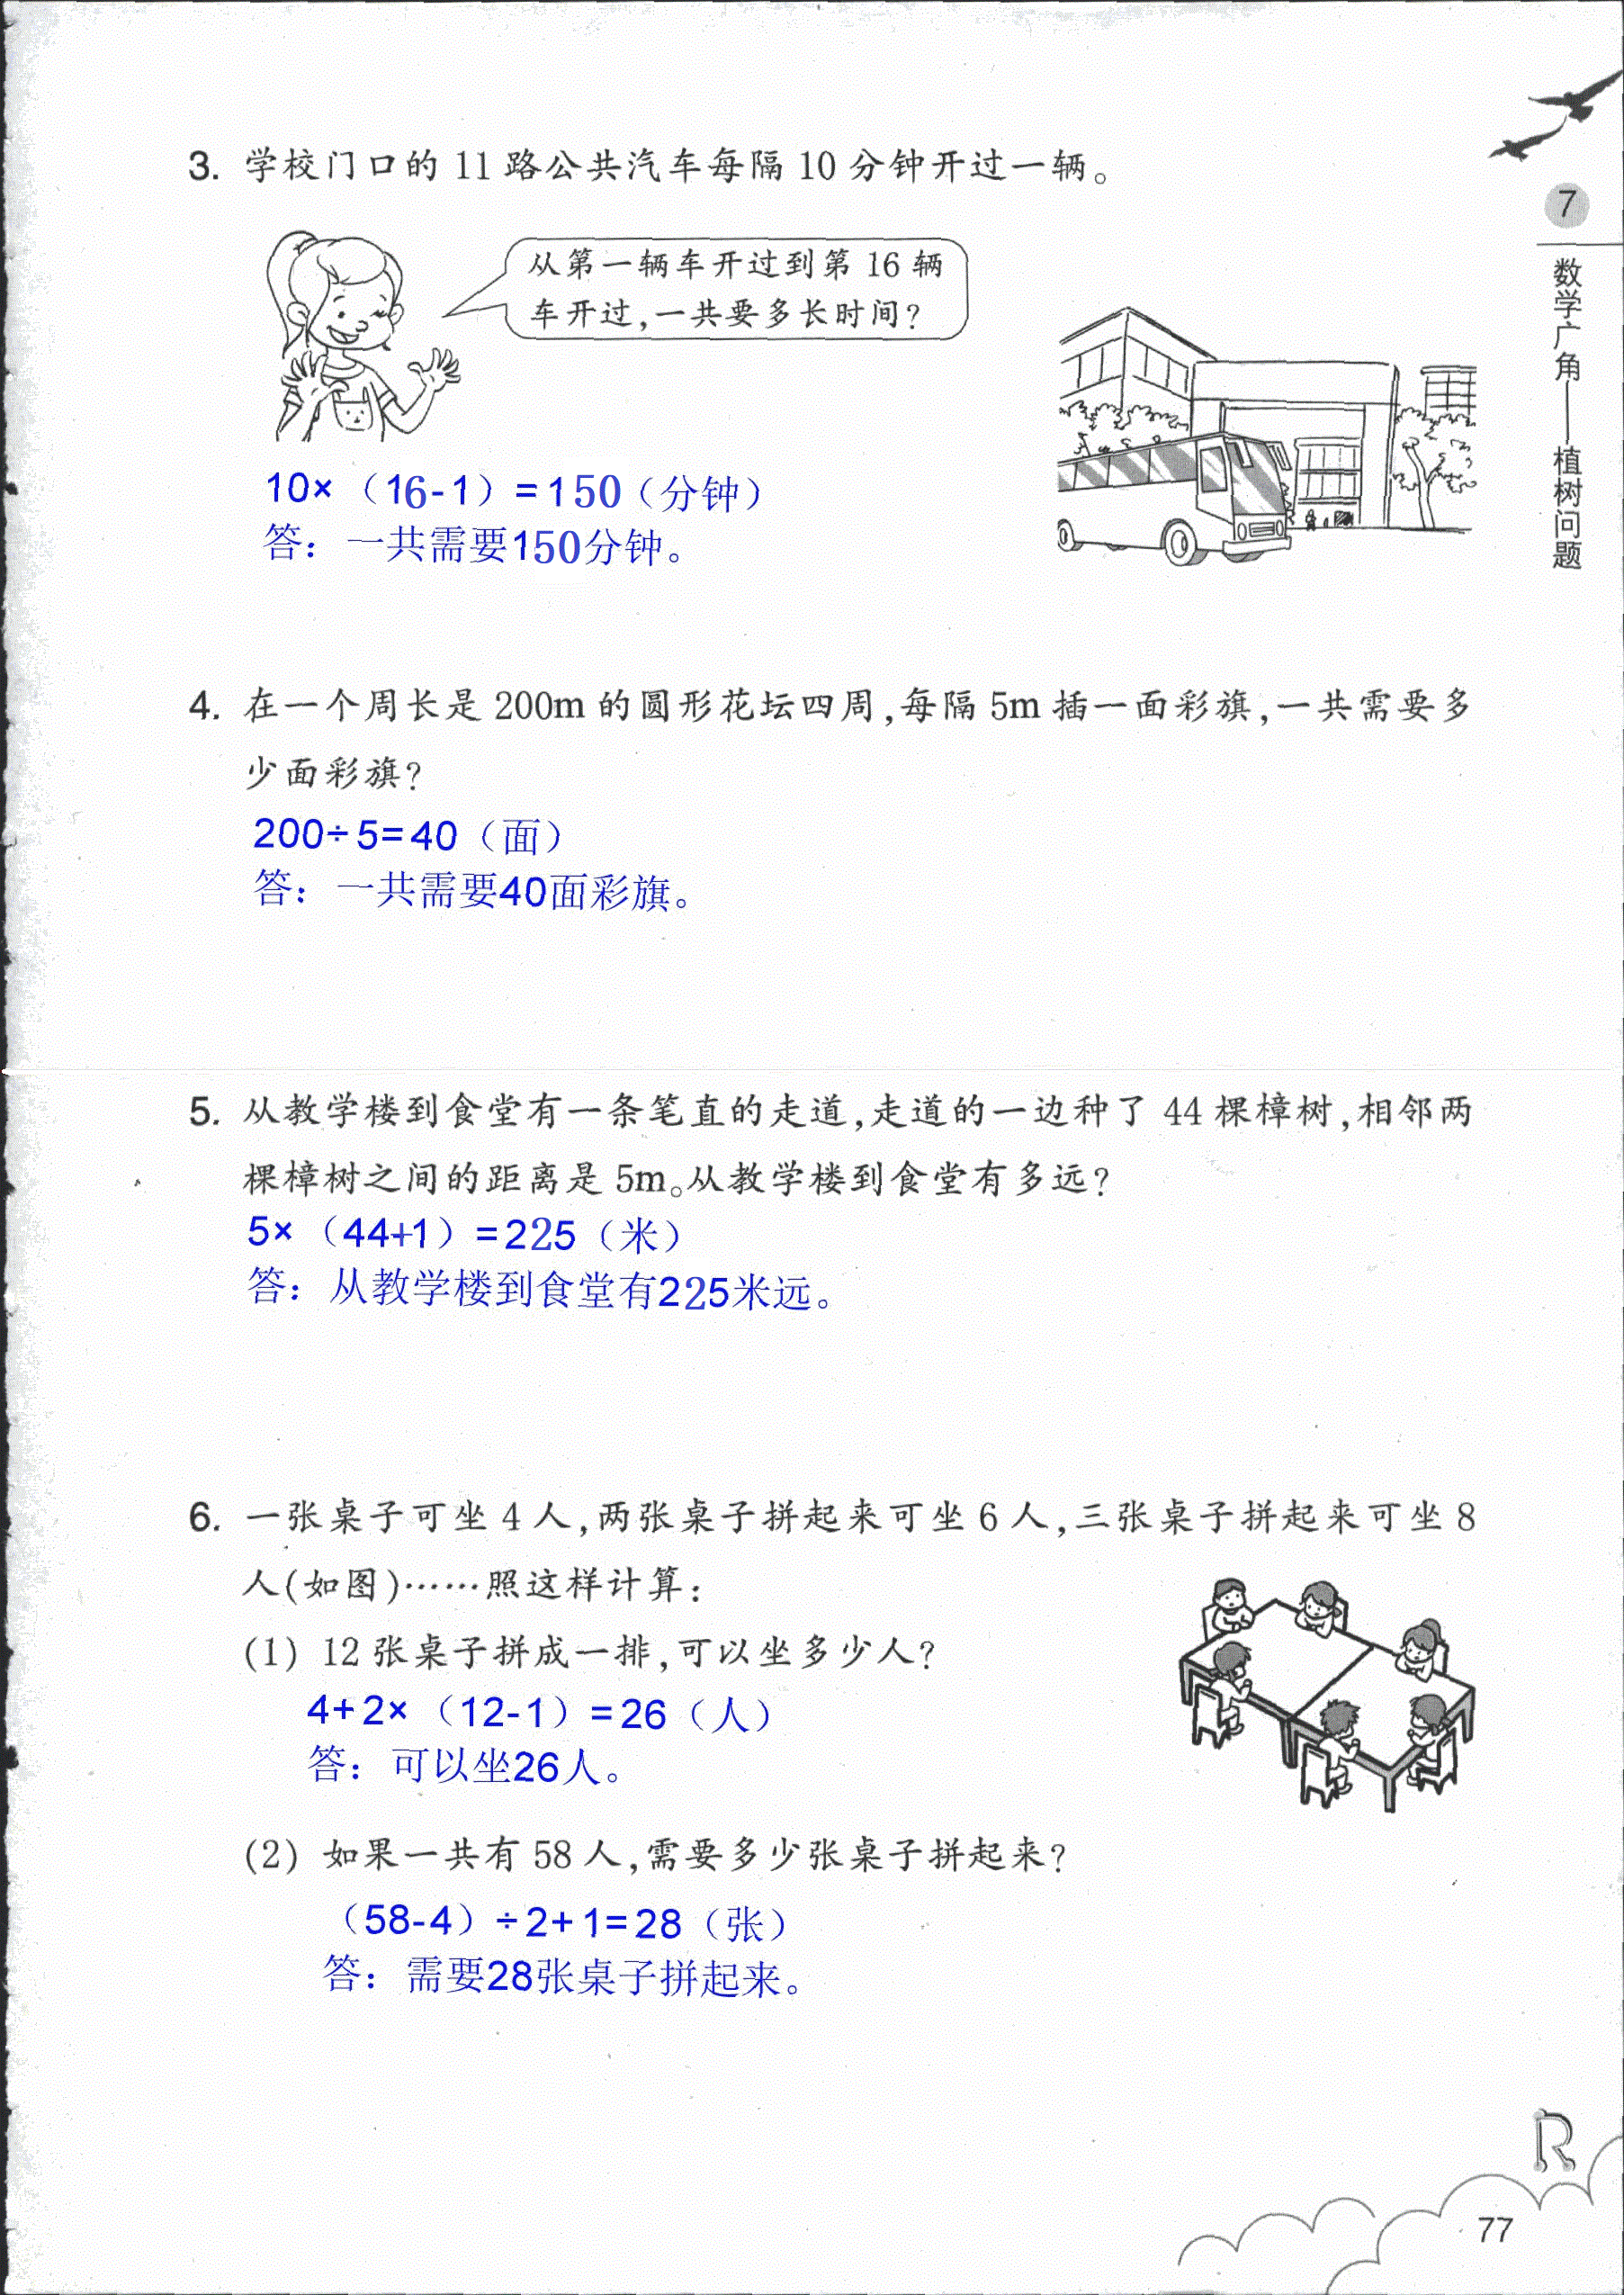 3. 学校门口的 11 路公共汽车每隔 10 分钟开过一辆。
从第一辆车开过到第 16 辆
车开过,一共要多长时间?
10×（16-1）=150（分钟）
答：一共需要150分钟。
7
数学广角——植树问题
4. 在一个周长是 200m 的圆形花坛四周,每隔 5m 插一面彩旗,一共需要多
少面彩旗?
200÷5=40（面）
答：一共需要40面彩旗。
5. 从教学楼到食堂有一条笔直的走道,走道的一边种了 44 棵樟树,相邻两
棵樟树之间的距离是 5m。从教学楼到食堂有多远?
5×（44+1）=225（米）
答：从教学楼到食堂有225米远。
6. 一张桌子可坐 4 人,两张桌子拼起来可坐 6 人,三张桌子拼起来可坐 8
人(如图)……照这样计算:
(1) 12 张桌子拼成一排,可以坐多少人?
4+2×（12-1）=26（人）
答：可以坐26人。
(2) 如果一共有 58 人,需要多少张桌子拼起来?
（58-4）÷2+1=28（张）
答：需要28张桌子拼起来。
R
77